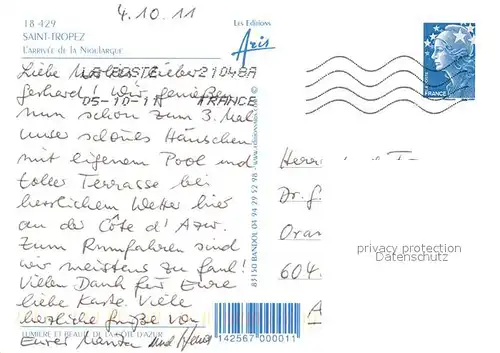 4.10.11
18 429
SAINT-TROPEZ
L'ARRIVÉE DE LA NIOULARGUE
Les Editions
Aris
FRANCE
Liebe lieber
LA POSTE 21048A
Gerhard! Wir genießen
05-10-11 FRANCE
nun schon zum 3. Mal
unser schönes Häuschen
mit eigenem Pool und
toller Terrasse bei
herrlichem Wetter hier
an der Côte d'Azur.
Zum Rumfahren sind
wir meistens zu faul!
Vielen Dank für Eure
liebe Karte. Viele
herzliche Grüße von
Eurer und
LUMIÈRE ET BEAUTÉ DE LA CÔTE D'AZUR
83150 BANDOL 04 94 29 52 98 -
Herrn
Dr. G
Oran
604
A
privacy protection
Datenschutz
142567 000011